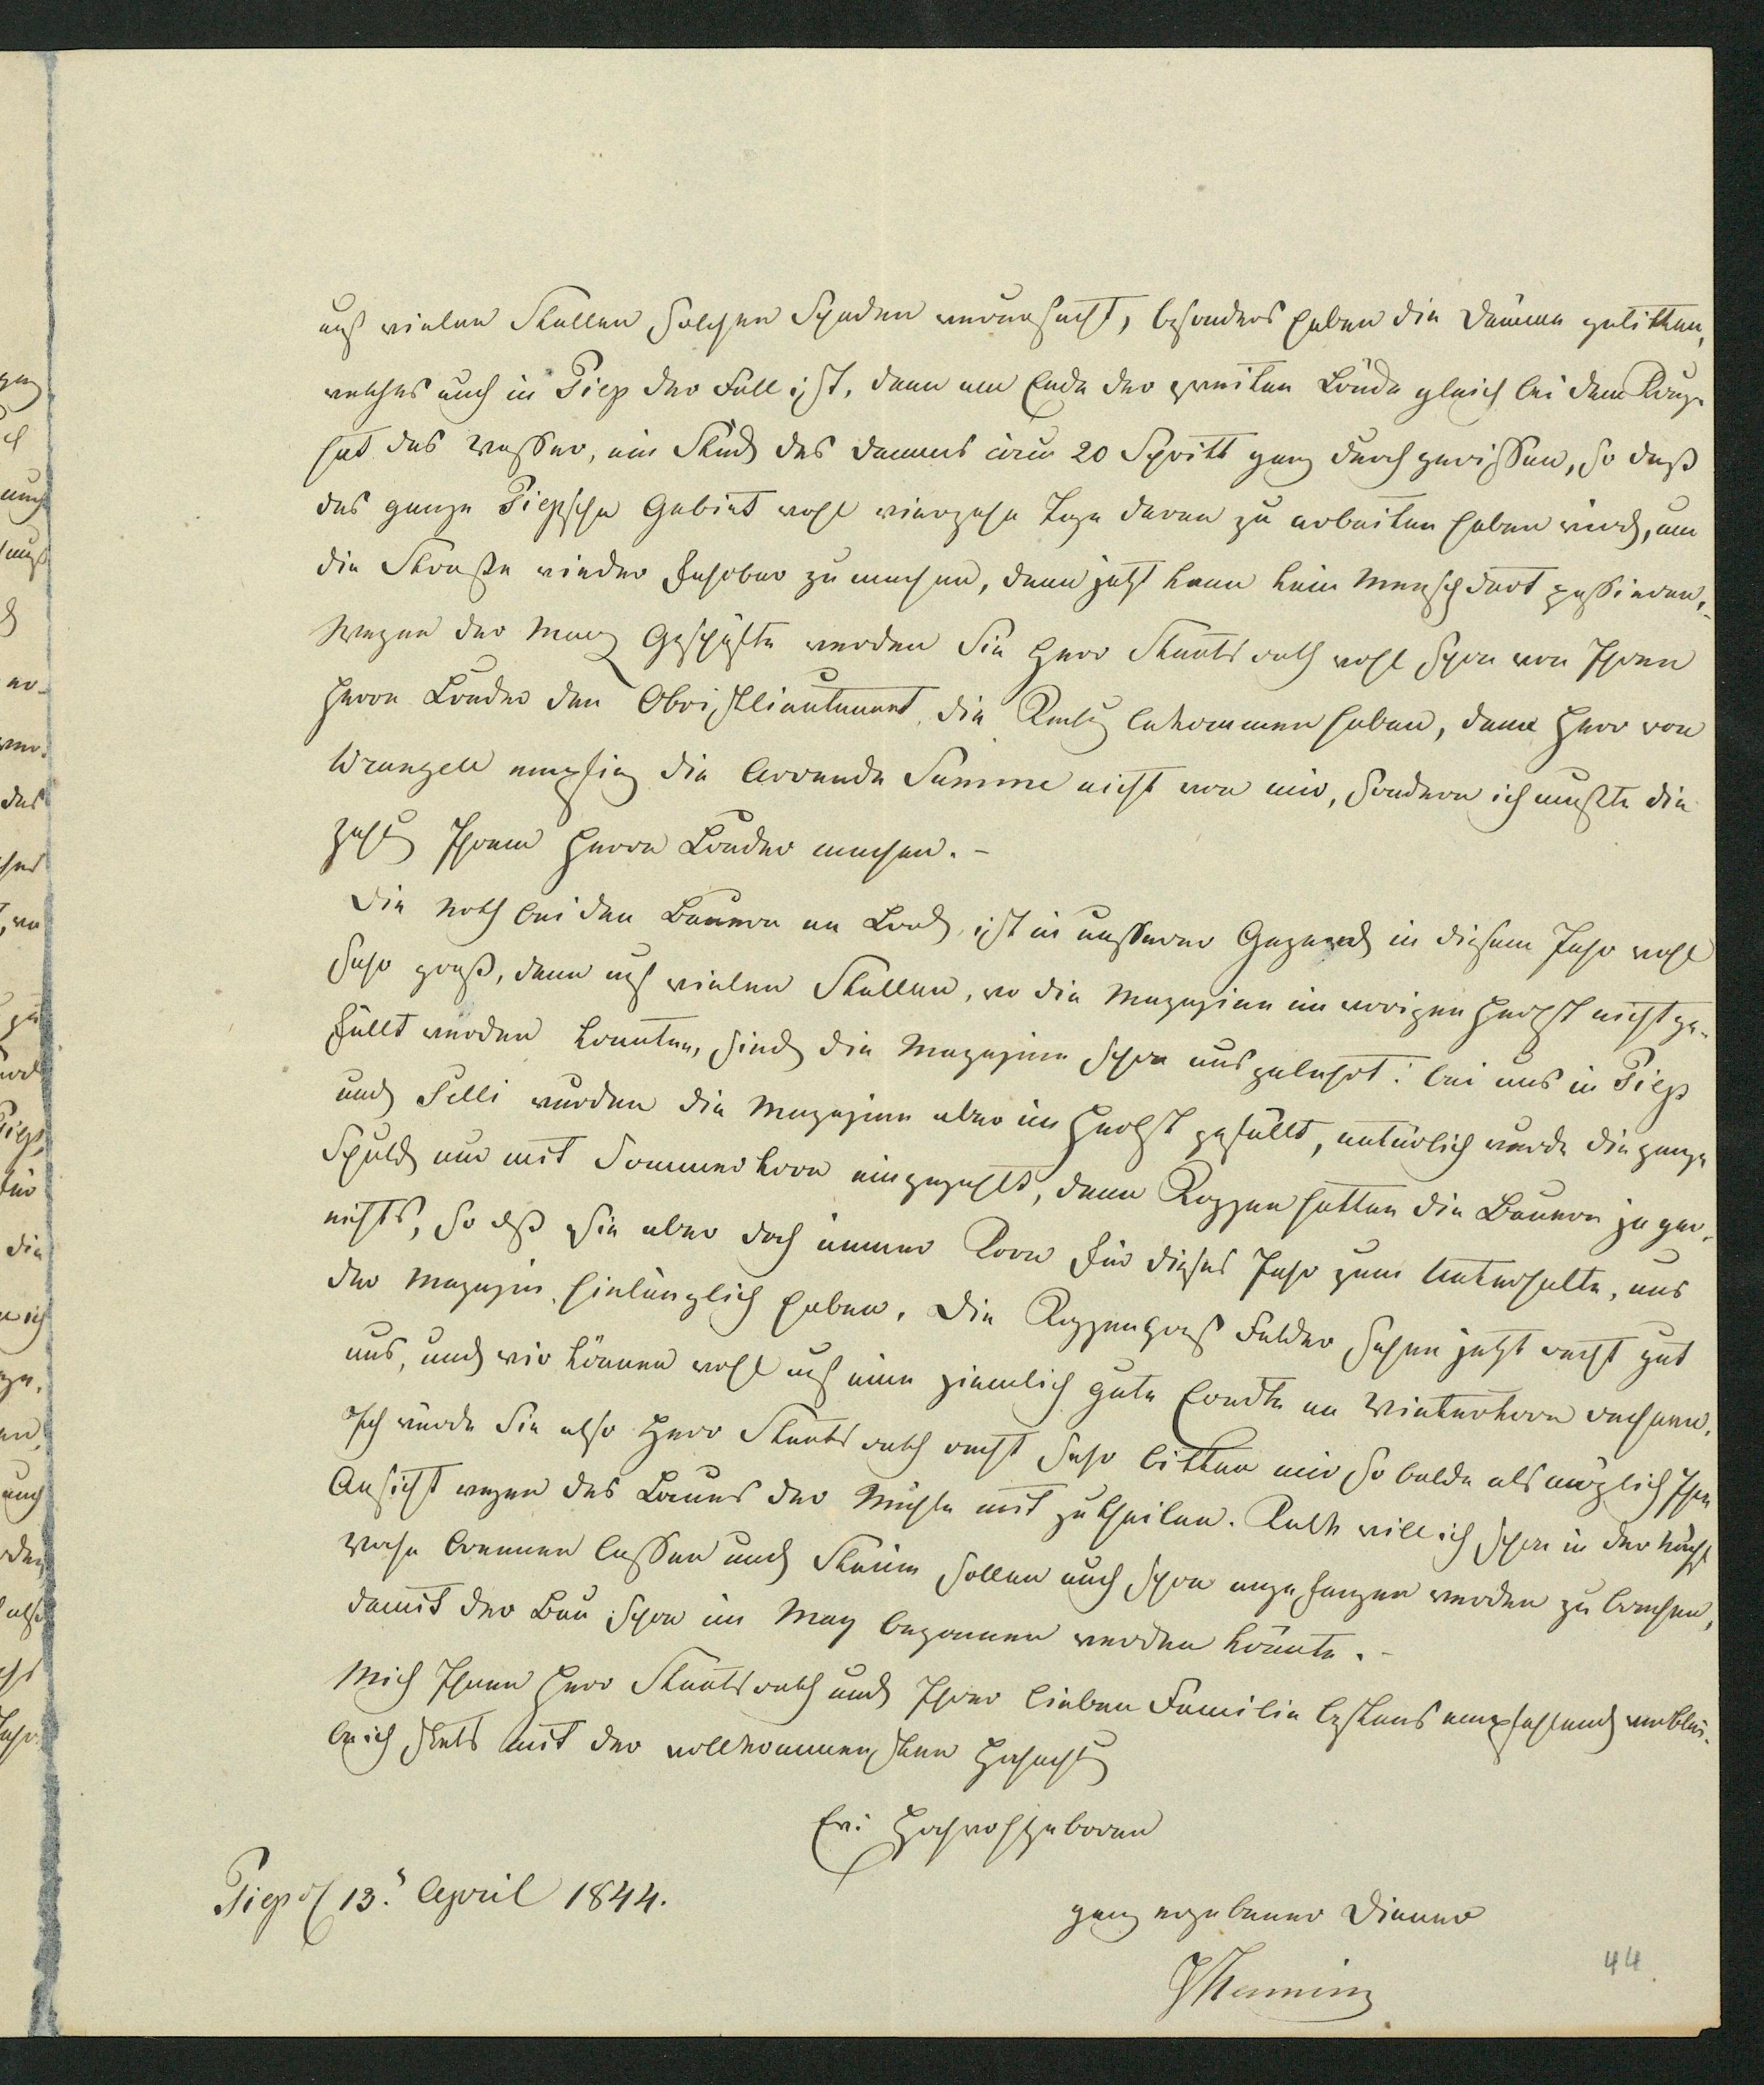 auf vielen Stellen solchen Schaden verursacht, besonders haben die Dämme gelitten,
welches auch in Piep der Fall ist, denn am Ende der zweiten Brücke gleich bei dem Kruge
hat das Wasser, ein Stück des Dammes circa 20 Schritt ganz durch gerissen, so daß
das ganze Piepsche Gebiet wohl vierzehn Tage daran zu arbeiten haben wird, um
die Straße wieder fahrbar zu machen, denn jetzt kann kein Mensch dort passieren.
Wegen der März Geschäfte werden Sie Herr Staatsrath wohl schon von Ihren
Herrn Bruder den Obristlieutenant die Rechg bekommen haben, denn Herr von
Wrangell empfing die Arrende Summe nicht von mir, sondern ich mußte die
Zahlg Ihrem Herrn Bruder machen. –
Die Noth bei den Bauern an Brod, ist in unserer Gegend in diesem Jahr wohl
sehr groß, denn auf vielen Stellen, wo die Magazine im vorigen Herbst nicht ge-
füllt werden konnten, sind die Magazine schon ausgeleert: bei uns in Piep
und Selli wurden die Magazine aber im Herbst gefüllt, natürlich wurde die ganze
Schuld nur mit Sommerkorn eingezahlt, denn Roggen hatten die Bauern ja gar
nichts, so daß sie aber doch immer Korn für dieses Jahr zum Unterhalte, aus
der Magazin hinlänglich haben. Die Roggengras Felder sehen jetzt recht gut
aus, und wir können wohl auf eine ziemlich gute Erndte an Winterkorn rechnen.
Ich würde Sie also Herr Staatsrath recht sehr bitten mir so balde als möglich Ihre
Ansicht wegen des Baues der Mühle mit zu theilen. Kalk will ich schon in der nächst
Woche brennen lassen und Steine sollen auch schon angefangen werden zu brechen,
damit der Bau schon im May begonnen werden könnte. –
Mich Ihnen Herr Staatsrath und Ihrer lieben Familie bestens empfehlend verblei-
be ich stets mit der vollkommensten Hochachtg
Ew: Hochwohlgeboren
Piep d 13t April 1844.
ganz ergebener Diener
Henning
44.